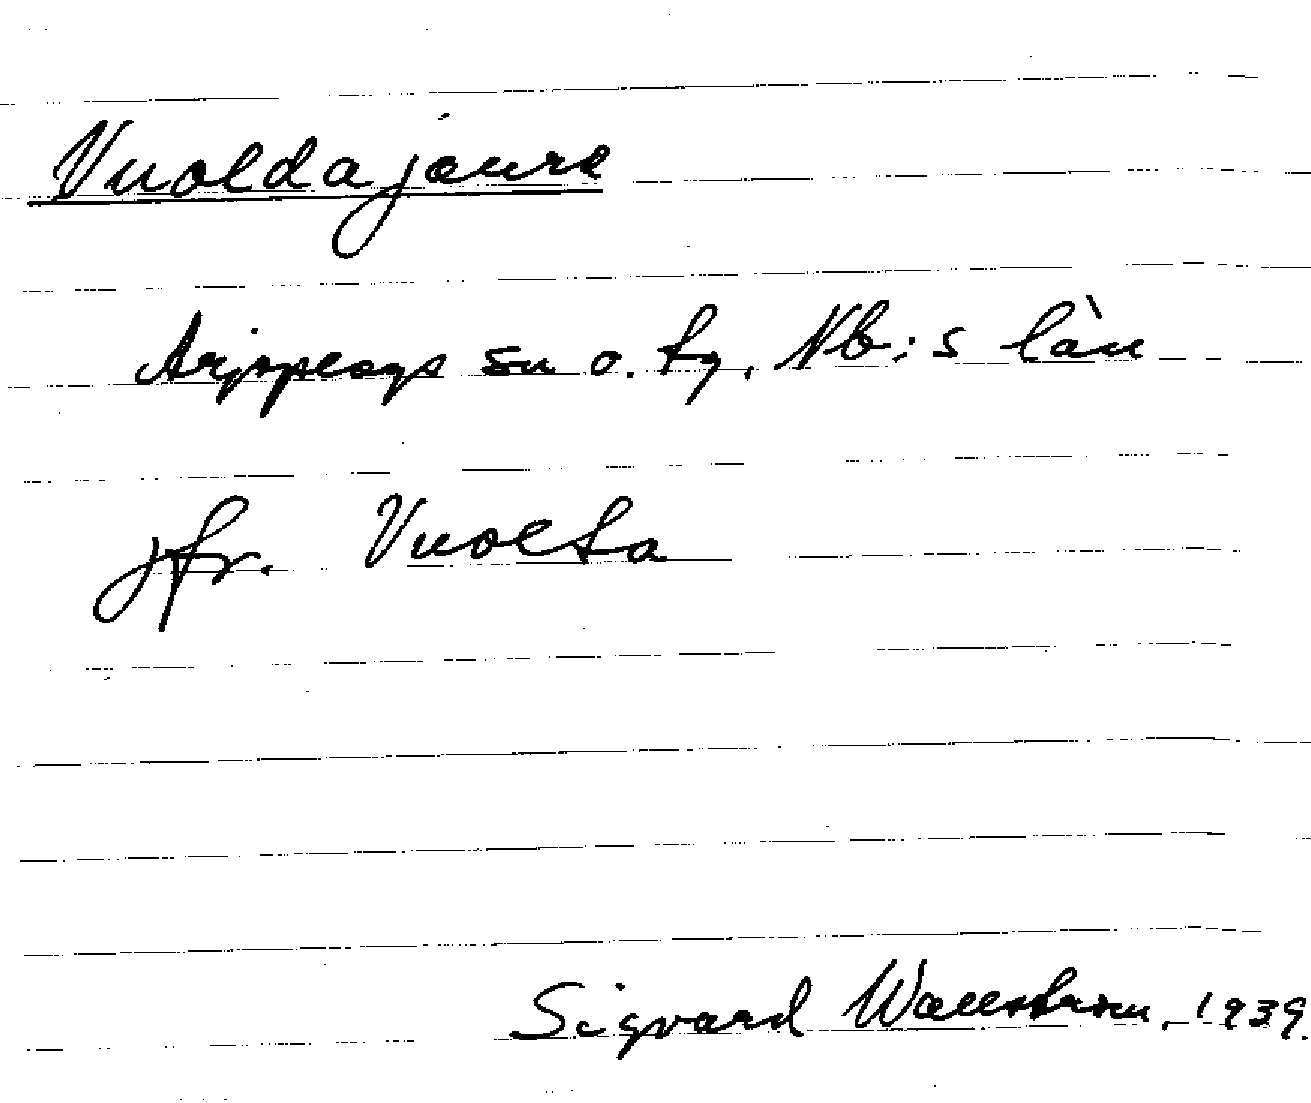 Vuoldajaure
Arjeplogs sn o. tg, Nb:s län
jfr. Vuolta
Sigvard Wallström, 1939.